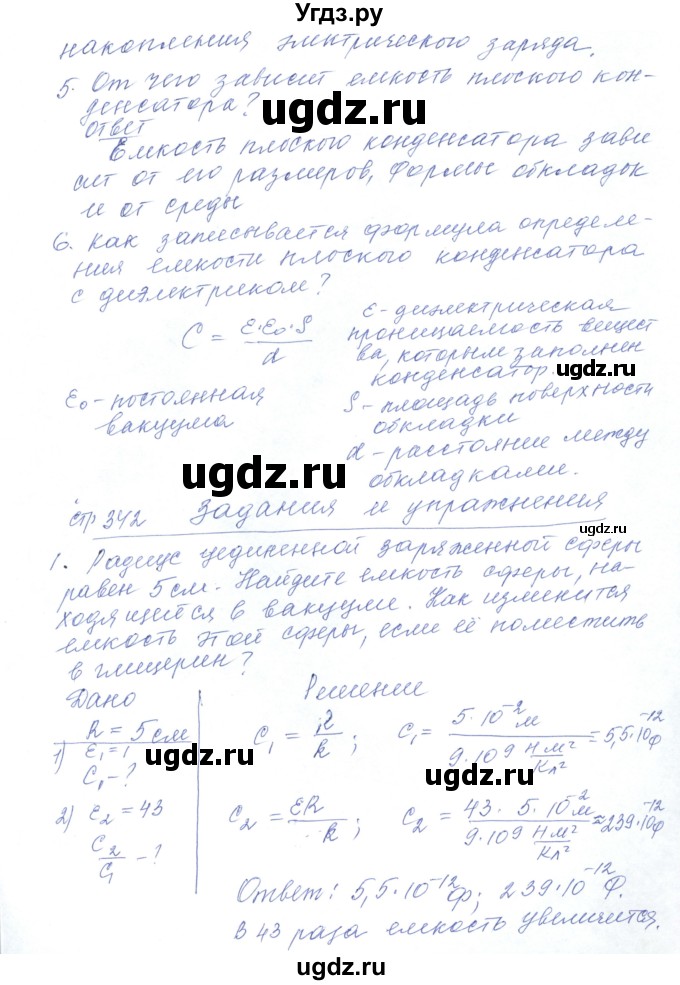 Угдз.ру
накопления электрического заряда.
5. От чего зависит емкость плоского кон-
денсатора?
ugdz.ru
ответ
Емкость плоского конденсатора зави
сит от его размеров, формы обкладок
и от среды
6. Как записывается формула определе-
ния емкости плоского конденсатора
с диэлектриком?
C = ε·ε₀·S / d
ε - диэлектрическая
проницаемость вещест
ва, которым заполнен
конденсатор.
ugdz.ru
ε₀ - постоянная
вакуума
S - площадь поверхности
обкладки
d - расстояние между
обкладками.
ugdz.ru
стр 342 Задания и упражнения
ugdz.ru
1. Радиус уединенной заряженной сферы
равен 5 см. Найдите емкость сферы, на-
ходящейся в вакууме. Как изменится
емкость этой сферы, если её поместить
в глицерин?
Дано
Решение
R = 5 см
1) ε₁ = 1
C₁ - ?
2) ε₂ = 43
C₂/C₁ - ?
ugdz.ru
C₁ = R/k ; C₁ = 5·10⁻² м / 9·109 Н м²/Кл² = 5,5·10⁻¹² Ф
C₂ = εR/k ; C₂ = 43·5·10⁻² м / 9·109 Н м²/Кл² = 239·10⁻¹² Ф
ugdz.ru
Ответ: 5,5·10⁻¹² Ф; 239·10⁻¹² Ф.
В 43 раза емкость увеличится.
ugdz.ru
ugdz.ru